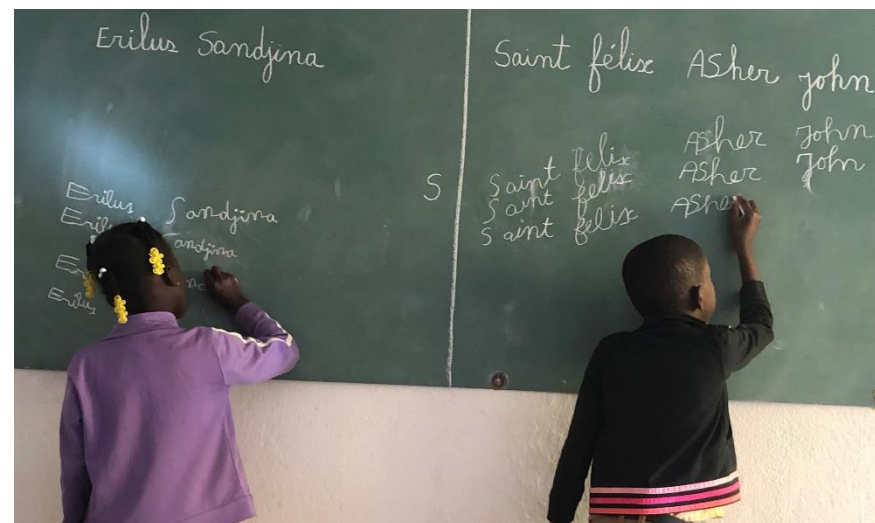 Erilus Sandjina
Erilus Sandjina
Andjina
Erilus
Saint félix ASher john
S
Saint felix ASher John
Saint felix ASher John
Saint felix AShe